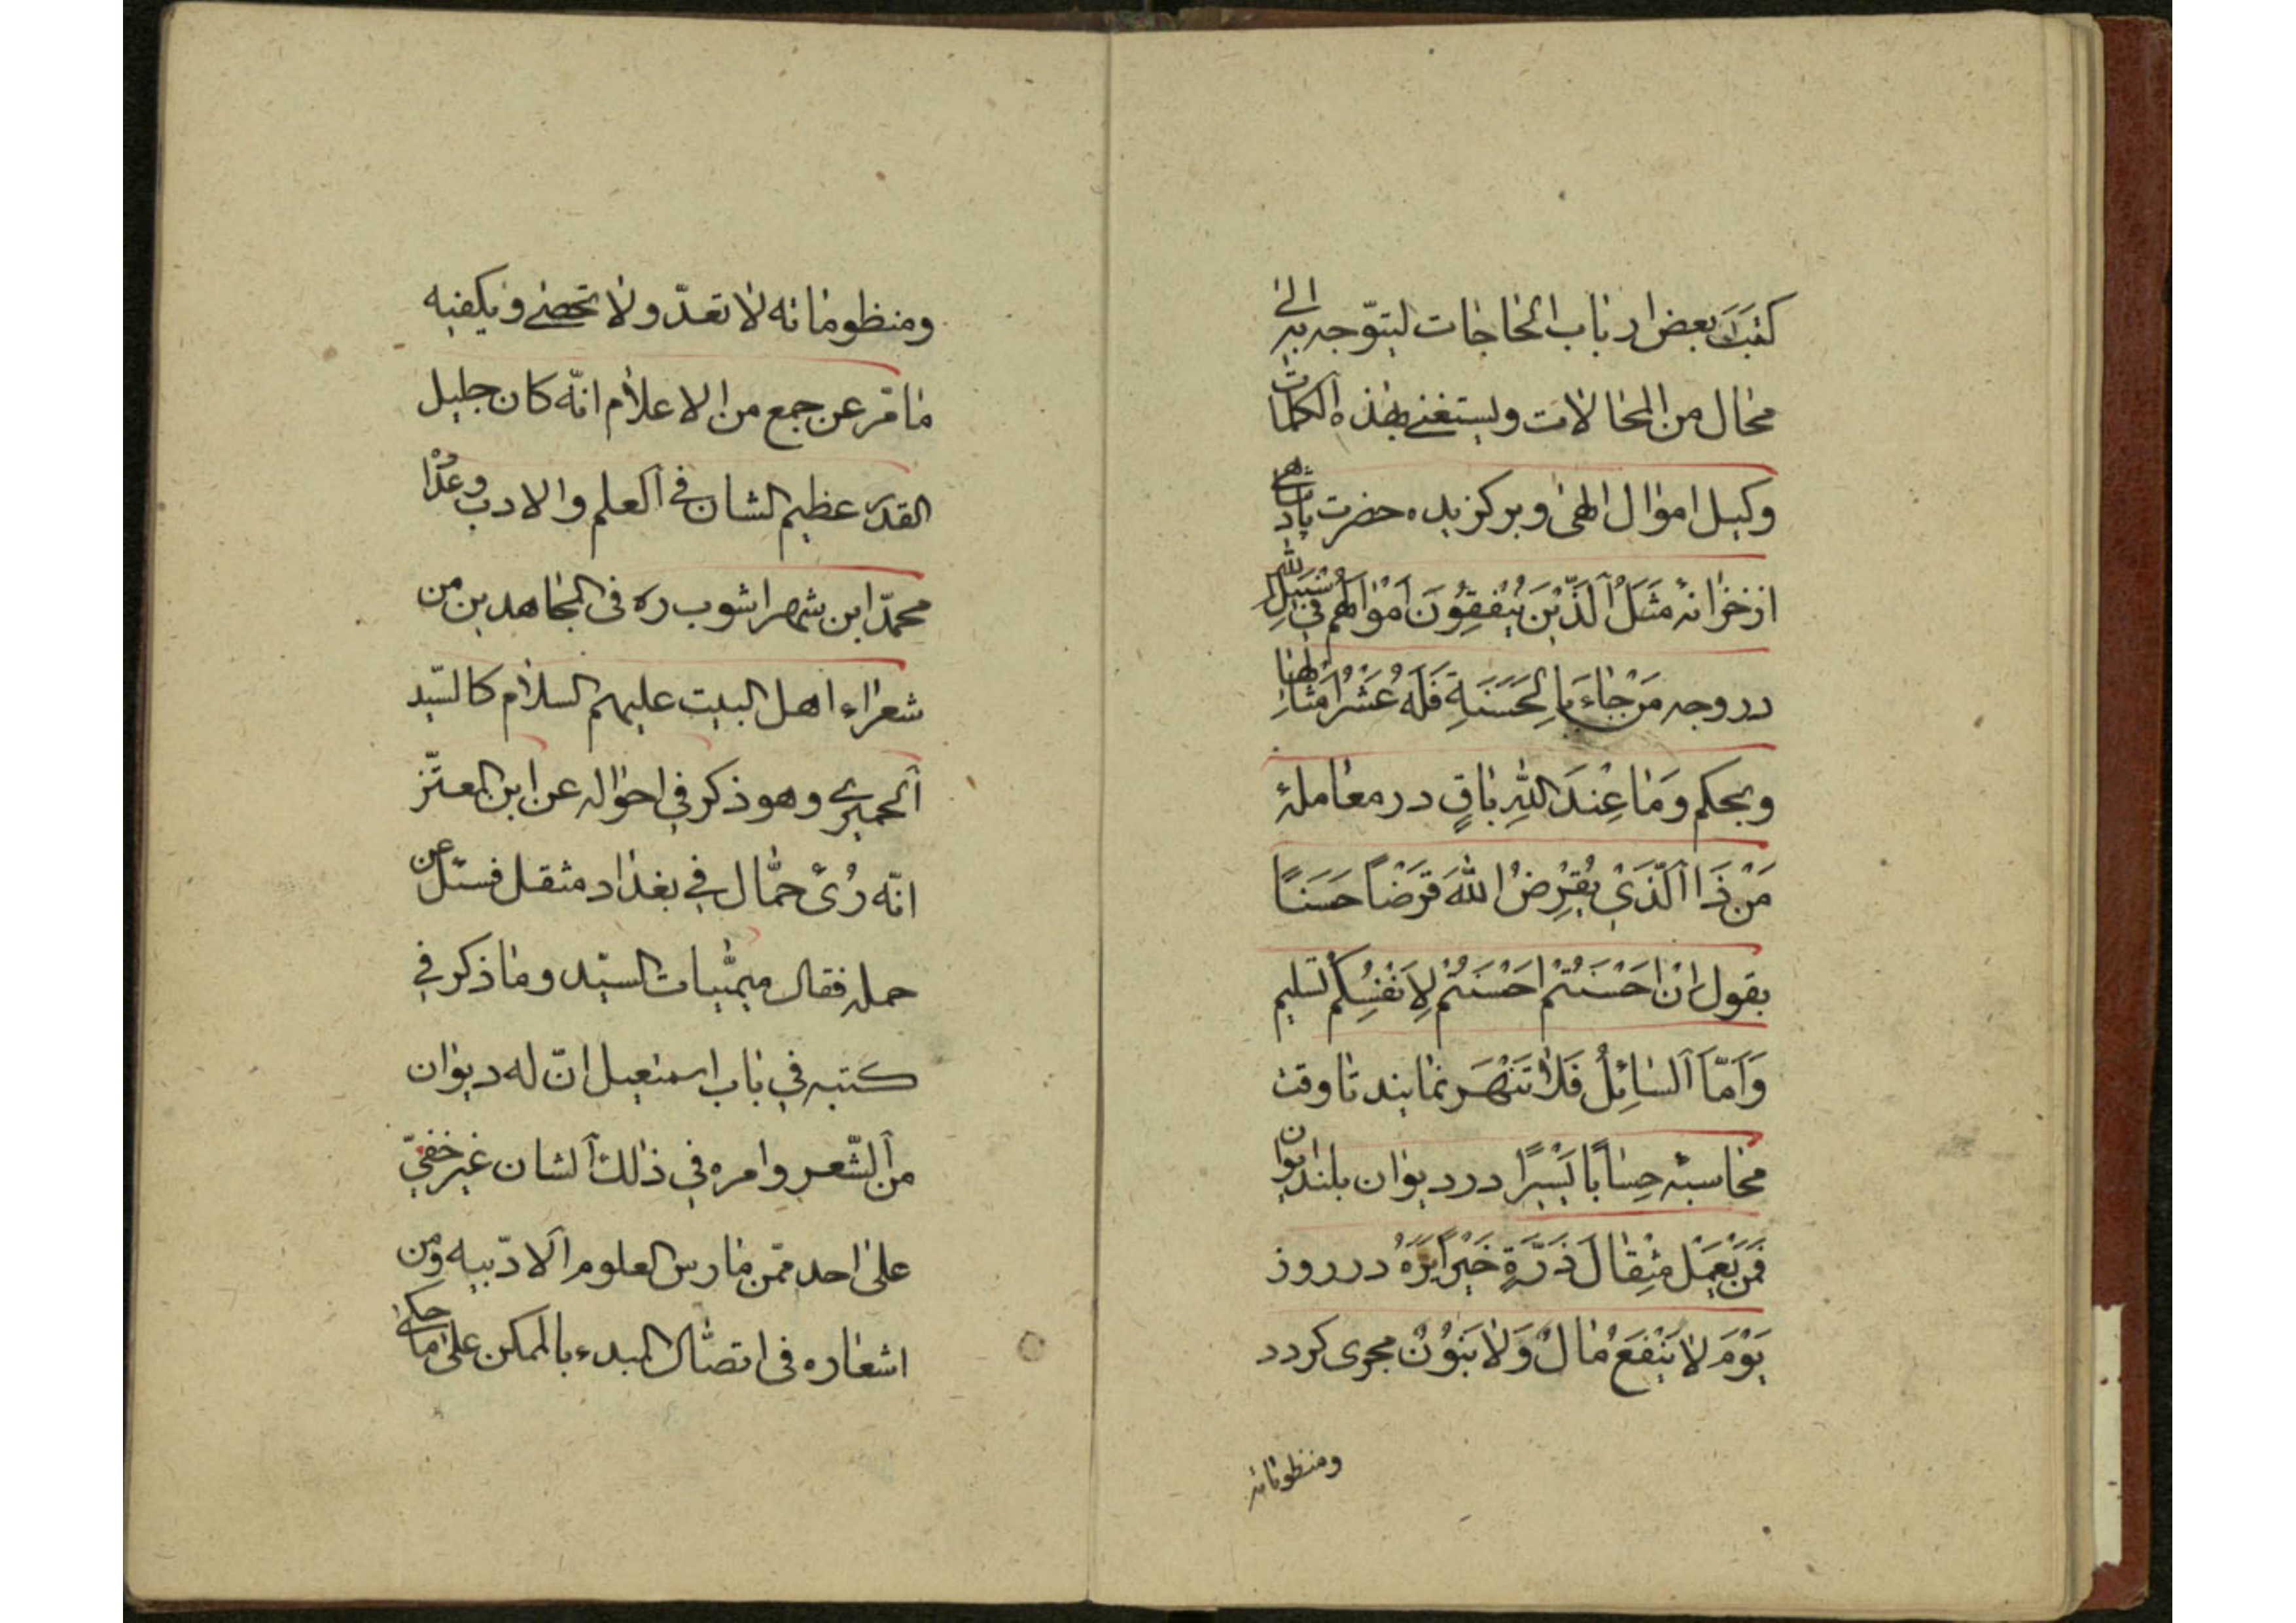 كتبت بعض ارباب الحاجات ليتوجه به الى
محال من المحالات ويستغنى بهذه الكلمات
وكيل اموال الهى وبركزيده حضرت پادشاهى
از خزانهٔ مَثَلُ الَّذينَ يُنْفِقُونَ اَمْوٰالَهُم في سَبيلِ اللّٰهِ
در وجه مَنْ جٰاءَ بِالحَسَنَةِ فَلَهُ عَشْرُ اَمْثٰالِهٰا
وبحكم وَمٰا عِنْدَ اللّٰهِ بٰاقٍ در معاملهٔ
مَنْ ذَا الَّذي يُقْرِضُ اللّٰهَ قَرْضًا حَسَنًا
بقول اِنْ اَحْسَنْتُمْ اَحْسَنْتُمْ لِاَنْفُسِكُمْ تسليم
وَاَمَّا السٰائِلُ فَلاٰ تَنْهَر نمايند تا وقت
محاسبهٔ حِسٰابًا يَسْيرًا در ديوان بلند ايوان
فَمَنْ يَعْمَلْ مِثْقٰالَ ذَرَّةٍ خَيْرًا يَرَهُ در روز
يَوْمَ لاٰ يَنْفَعُ مٰالٌ وَلاٰ بَنُوْنْ مجرى كردد
ومنظوماته
ومنظوماته لا تعدّ ولا تحصى ويكفيه
ما مر عن جمع من الاعلام انّه كان جليل
القدر عظيم الشان في العلم والادب وعدّه
محمّد ابن شهراشوب ره فى المجاهدين من
شعراء اهل البيت عليهم السلام كالسّيد
الحميرى وهو ذكر في احواله عن ابن المعتّز
انّه رُئ حمّال في بغداد مثقل فسئل عن
حمله فقال ميميّات السيّد وما ذكر في
كتبه في باب اسمعيل انّ له ديوان
من الشّعر وامره في ذلك الشان غير خفيّ
على احد ممّن مارس العلوم الادّبيه ومن
اشعاره فى اتصال المبدء بالممكن على ما حكى